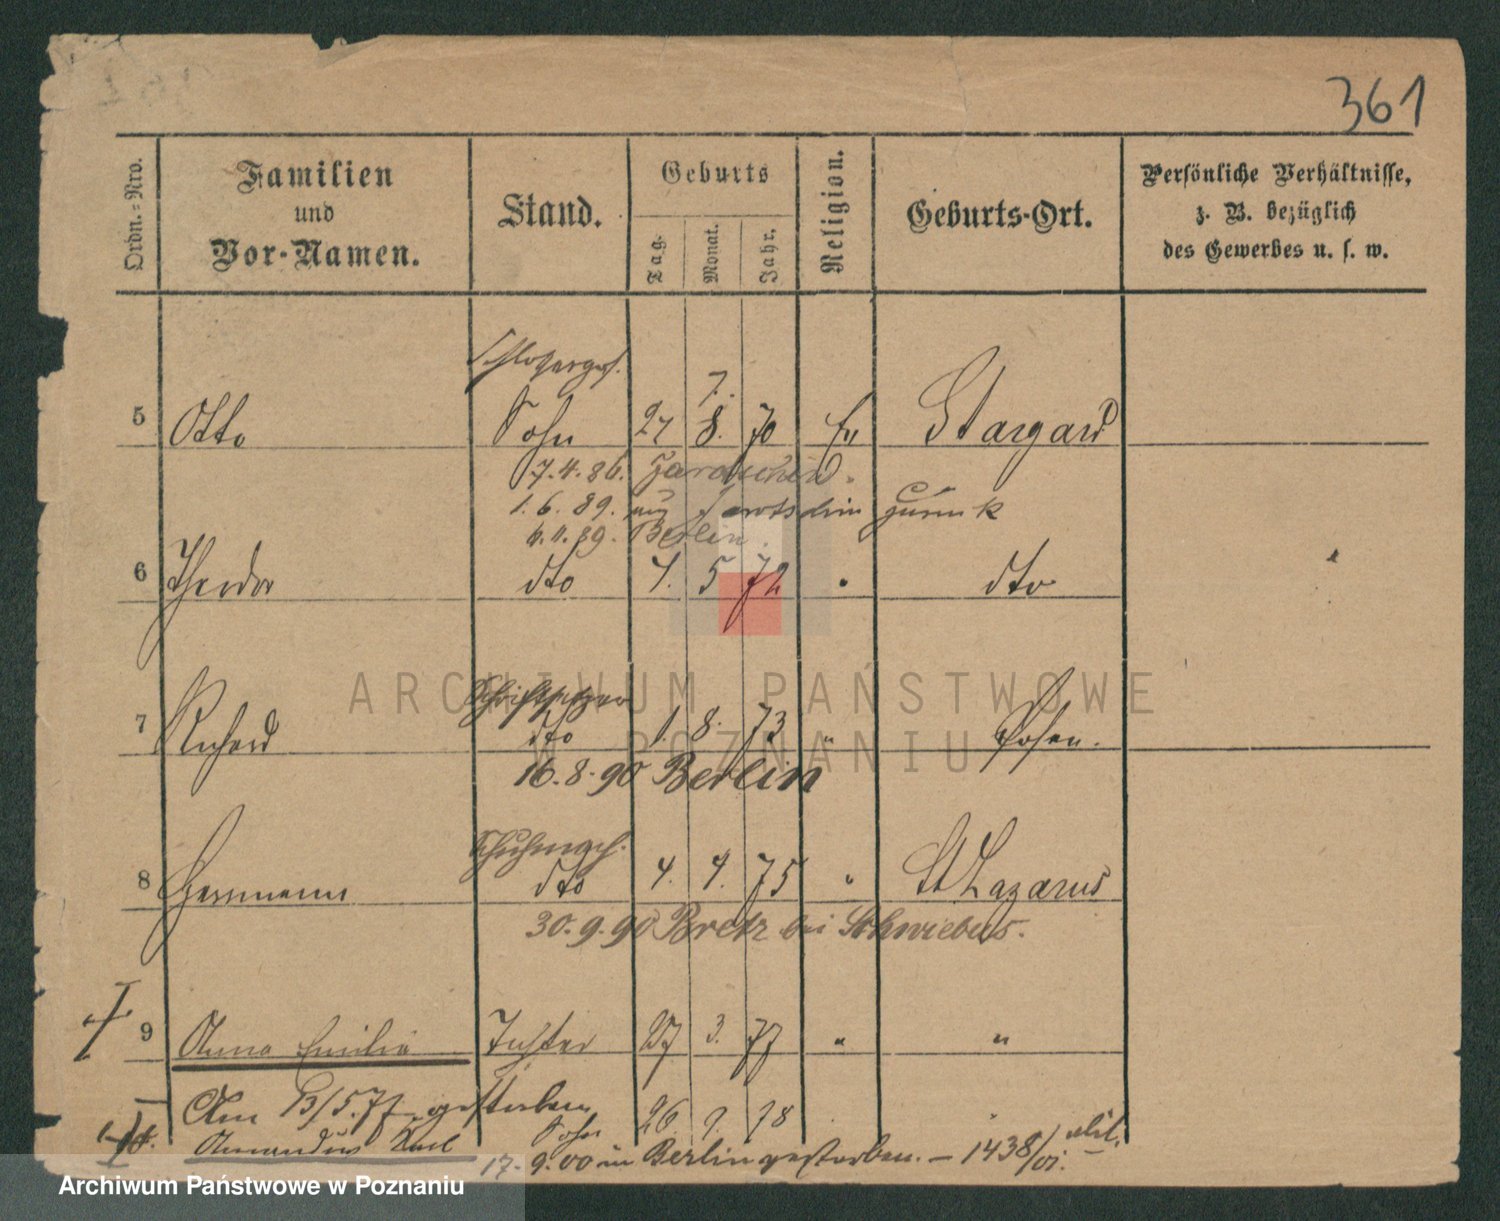 361
Ordn.=Nro.
Familien
und
Vor-Namen.
Stand.
Geburts
Tag.
Monat.
Jahr.
Religion.
Geburts-Ort.
Persönliche Verhältnisse,
z. B. bezüglich
des Gewerbes u. s. w.
Schlosserges.
7.
5 Otto Sohn 27 8. 70 Ev Stargard
7.4.86.
1.6.89. aus zurück
4.11.89. Berlin.
6 Theodor dto 7. 5 72 " dto
Schriftsetzer
7 Richard dto 1. 8. 73 " Posen.
16.8.90 Berlin
Schuhmach.
8 Herrmann dto 4. 9. 75 " St Lazarus
30.9.90 Bretz bei Schwiebus.
9 Anna Emilie Tochter 27 3. 77 " "
Am 13/5.77 gestorben
Amandus Karl Sohn 26. 9. 78
17.9.00 in Berlin gestorben. – 1438/01.
ARCHIWUM PAŃSTWOWE
W POZNANIU
Archiwum Państwowe w Poznaniu